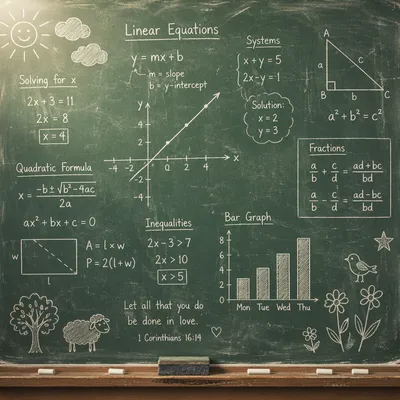 Linear Equations
y = mx + b
m = slope
b = y-intercept
Systems
x + y = 5
2x - y = 1
Solution:
x = 2
y = 3
A
a
c
B
b
C
a² + b² = c²
Solving for x
2x + 3 = 11
2x = 8
x = 4
y
4
2
-2
-4
-4 -2 2 4
x
Fractions
a/b + c/d = ad+bc/bd
a/b - c/d = ad-bc/bd
Quadratic Formula
x = -b ± √b²-4ac / 2a
ax² + bx + c = 0
w
l
A = l × w
P = 2(l+w)
Inequalities
2x - 3 > 7
2x > 10
x > 5
Bar Graph
8
6
4
2
0
Mon Tue Wed Thu
Let all that you do
be done in love.
1 Corinthians 16:14